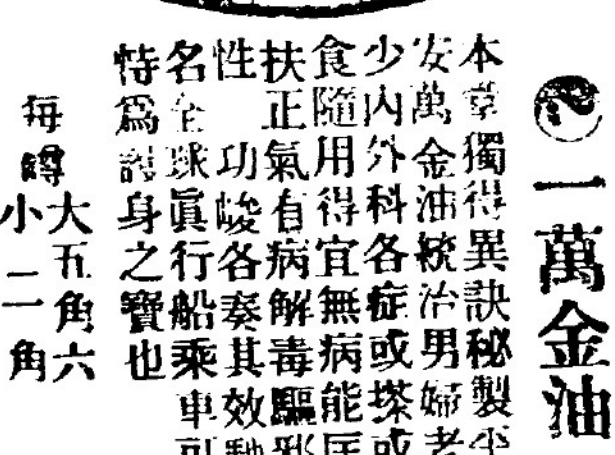 一萬金油
本堂獨得異訣秘製平
安萬金油統治男婦老
少內外科各症或搽或
食隨用得宜無病能
扶正氣有病解毒驅邪
性功峻各奏其效馳
名全球眞行船乘車可
恃為護身之寶也
每罇大五角六
小二角